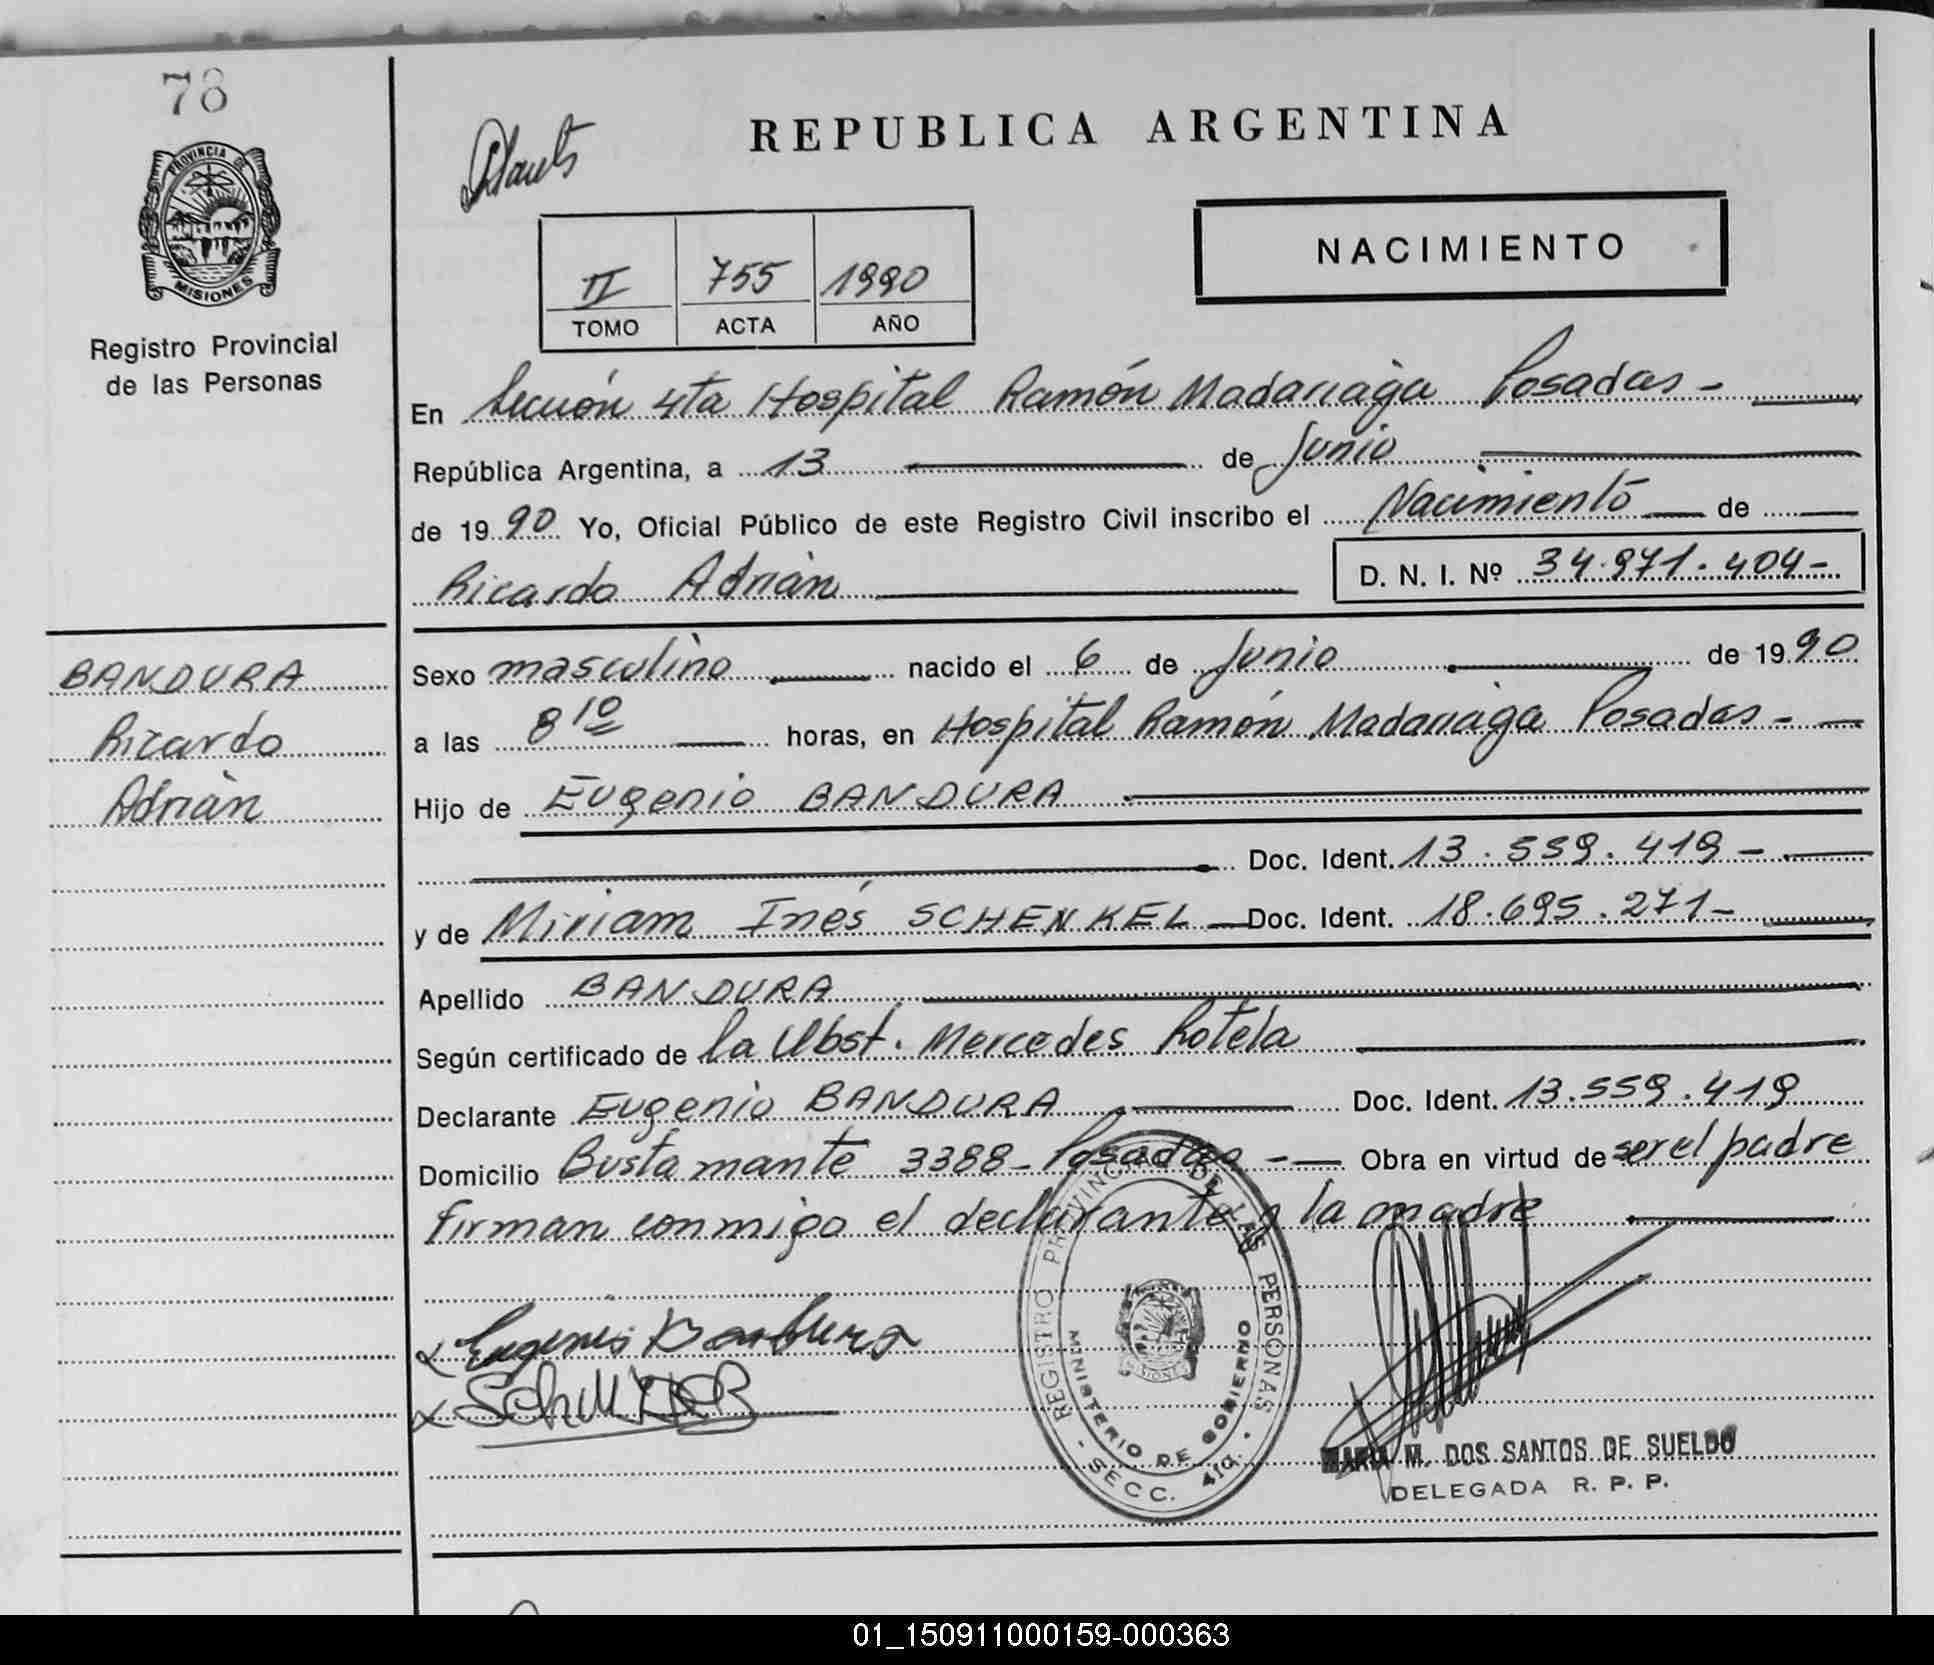 78
PROVINCIA DE
MISIONES
Registro Provincial
de las Personas
BANDURA
Ricardo
Adrián
REPUBLICA ARGENTINA
NACIMIENTO
II 755 1990
TOMO ACTA AÑO
En Sección 4ta Hospital Ramón Madariaga Posadas -
República Argentina, a 13 de Junio
de 1990 Yo, Oficial Público de este Registro Civil inscribo el Nacimiento de
Ricardo Adrián D. N. I. Nº 34.971.404-
Sexo masculino nacido el 6 de Junio de 1990
a las 8 10 horas, en Hospital Ramón Madariaga Posadas -
Hijo de Eugenio BANDURA
Doc. Ident. 13.559.419 -
y de Miriam Inés SCHENKEL Doc. Ident. 18.695.271-
Apellido BANDURA
Según certificado de la Obst. Mercedes Rotela
Declarante Eugenio BANDURA Doc. Ident. 13.559.419
Domicilio Bustamante 3388- Posadas - Obra en virtud de ser el padre
firman conmigo el declarante y la madre
Eugenio Bandura
REGISTRO PROVINCIAL DE LAS PERSONAS
MINISTERIO DE GOBIERNO
- SECC. 4ta. -
MARIA M. DOS SANTOS DE SUELDO
DELEGADA R. P. P.
01_150911000159-000363